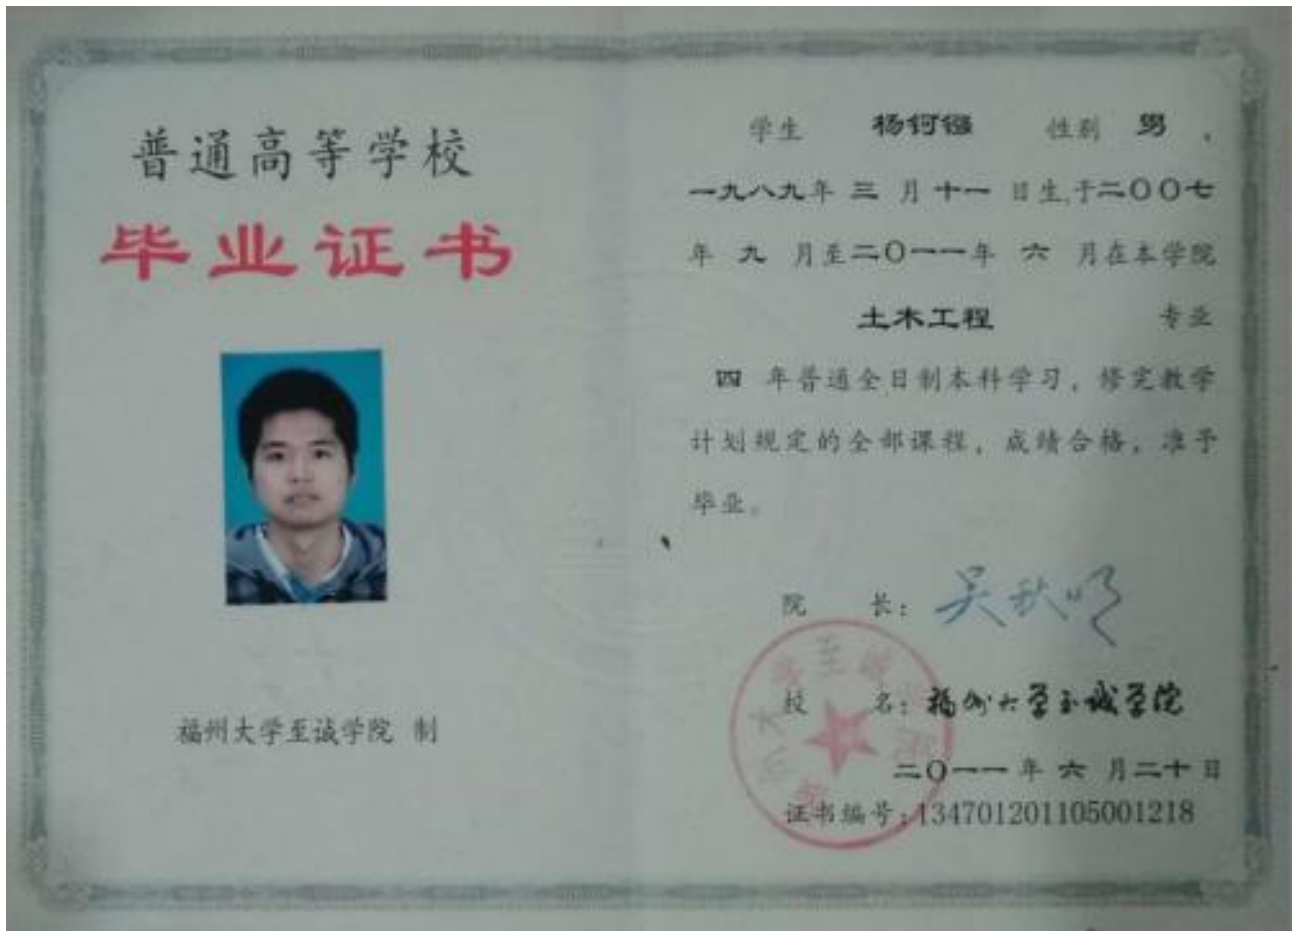 普通高等学校
毕业证书
福州大学至诚学院 制
学生 杨钶镪 性别 男 ，
一九八九年 三 月 十一 日生,于二〇〇七
年 九 月至二〇一一年 六 月在本学院
土木工程 专业
四 年普通全日制本科学习，修完教学
计划规定的全部课程，成绩合格，准予
毕业。
院 长：吴秋明
校 名：福州大学至诚学院
二〇一一年 六 月二十日
证书编号：134701201105001218